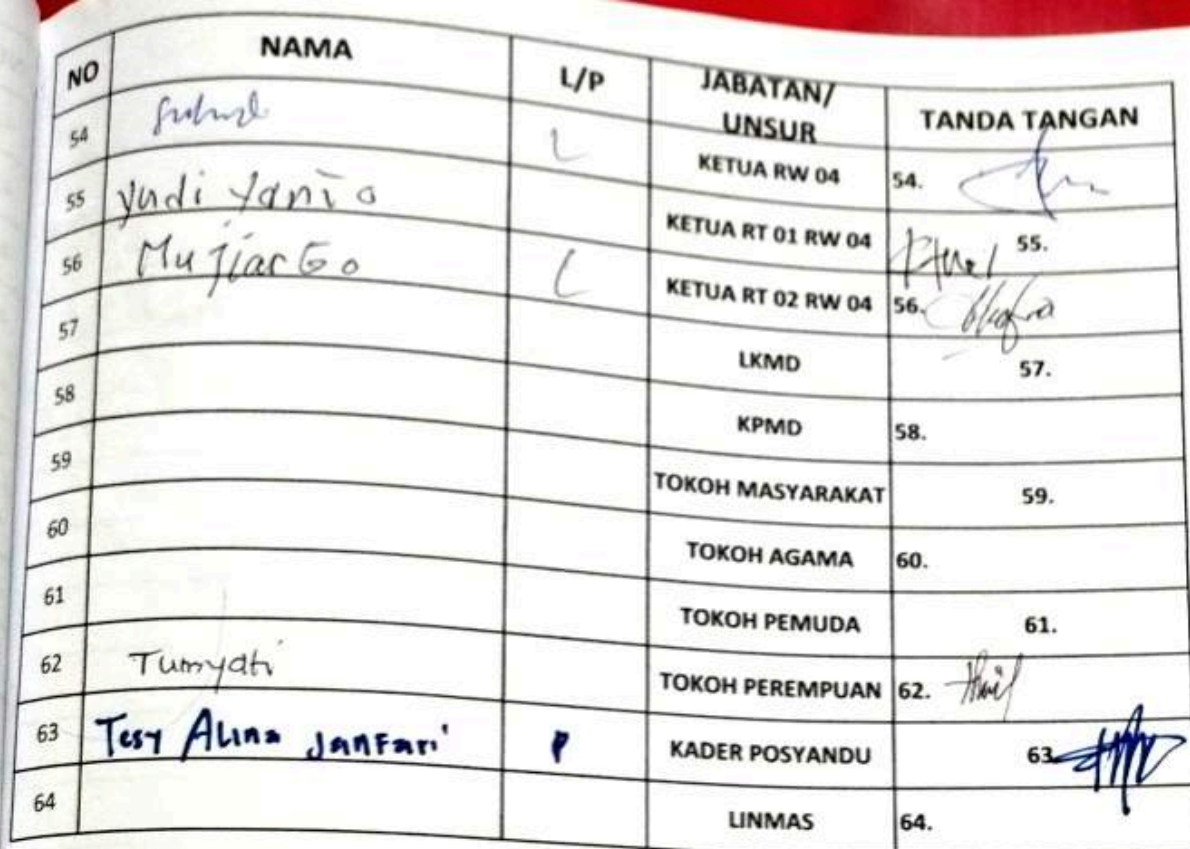 NO NAMA L/P JABATAN/ UNSUR TANDA TANGAN
54 L KETUA RW 04 54.
55 Yudi Yanto KETUA RT 01 RW 04 55.
56 Mujiarto L KETUA RT 02 RW 04 56.
57 LKMD 57.
58 KPMD 58.
59 TOKOH MASYARAKAT 59.
60 TOKOH AGAMA 60.
61 TOKOH PEMUDA 61.
62 Tumyati TOKOH PEREMPUAN 62.
63 Tesy Alina Janfari P KADER POSYANDU 63.
64 LINMAS 64.